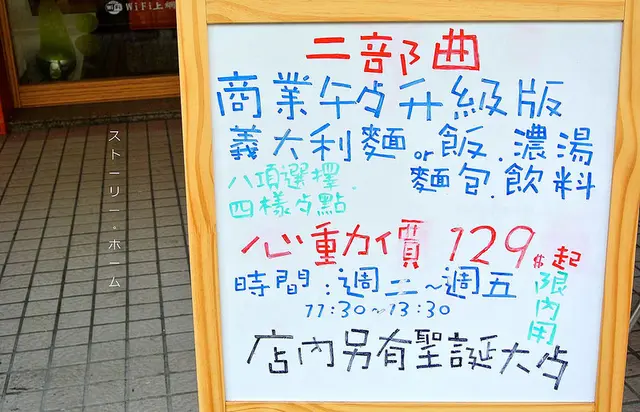 WiFi上網
二部曲
商業午歺升級版
義大利麵or飯.濃湯
麵包.飲料
八項選擇.
四樣歺點
心動價129$起
限內用
時間:週二~週五
11:30~13:30
店內另有聖誕大歺
ストーリー。ホーム